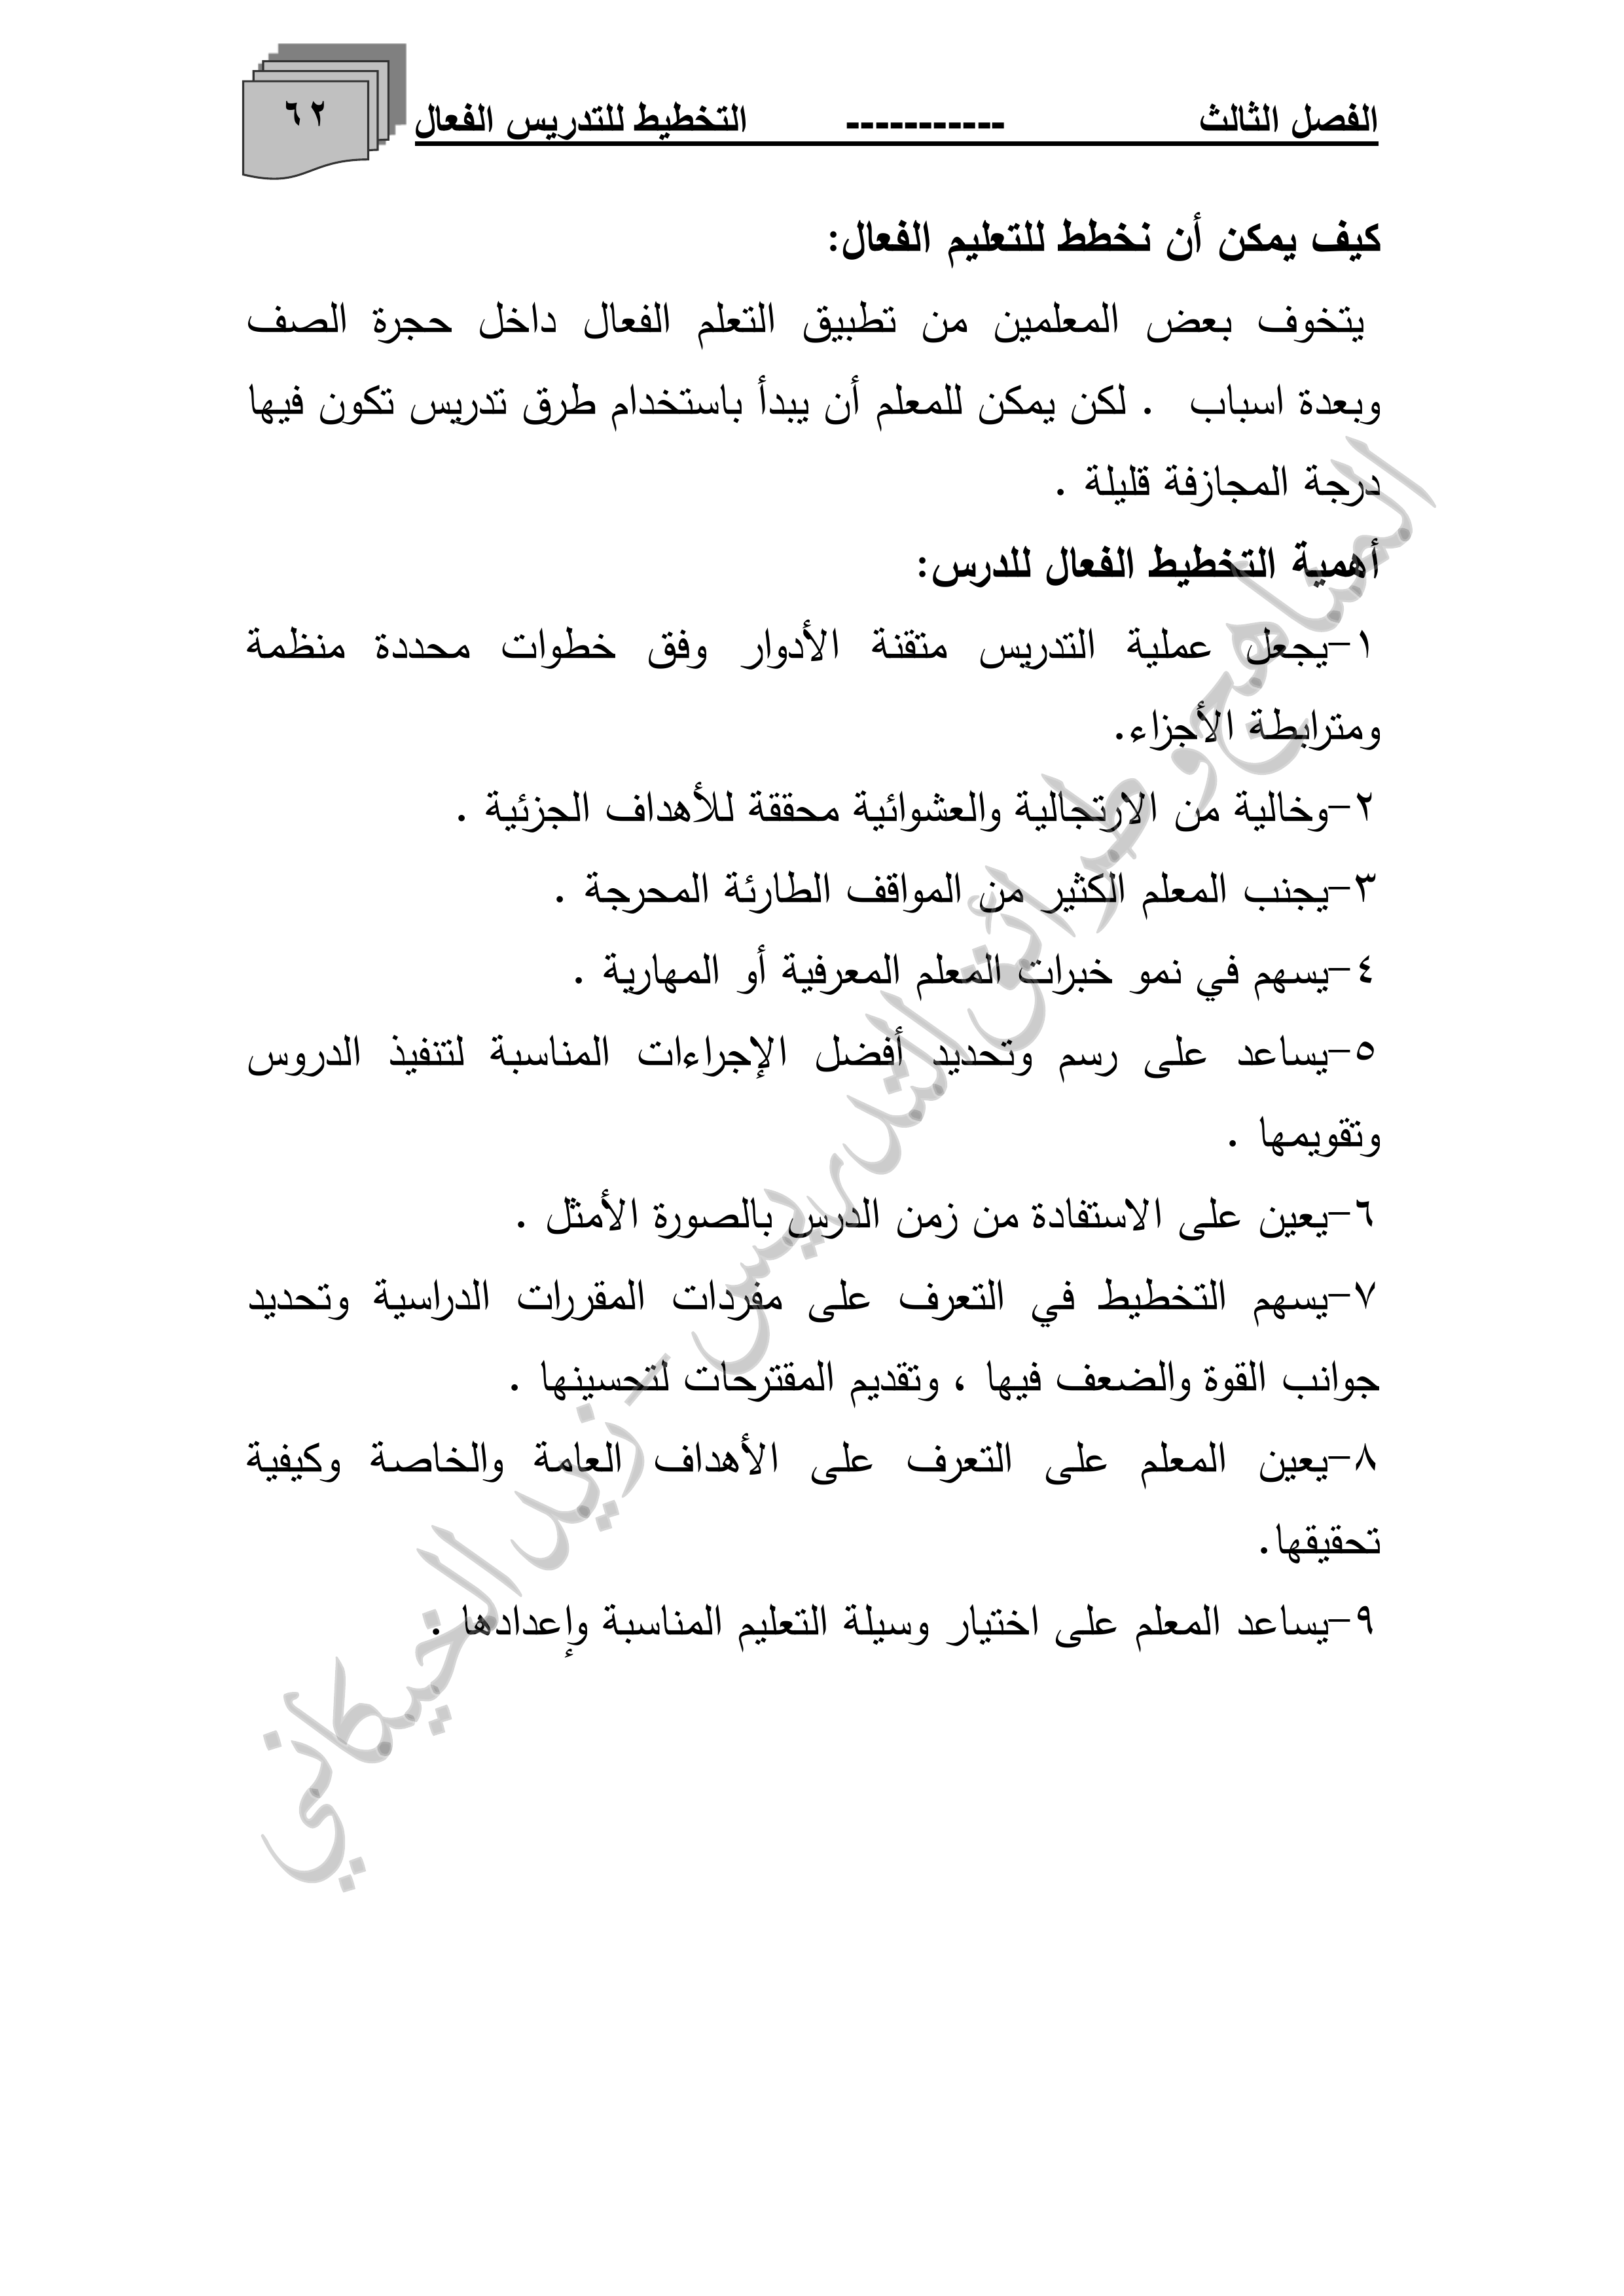 الفصل الثالث ----------- التخطيط للتدريس الفعال ٦٢
كيف يمكن أن نخطط للتعليم الفعال:
يتخوف بعض المعلمين من تطبيق التعلم الفعال داخل حجرة الصف
وبعدة اسباب . لكن يمكن للمعلم أن يبدأ باستخدام طرق تدريس تكون فيها
درجة المجازفة قليلة .
أهمية التخطيط الفعال للدرس:
١-يجعل عملية التدريس متقنة الأدوار وفق خطوات محددة منظمة
ومترابطة الأجزاء.
٢-وخالية من الارتجالية والعشوائية محققة للأهداف الجزئية .
٣-يجنب المعلم الكثير من المواقف الطارئة المحرجة .
٤-يسهم في نمو خبرات المعلم المعرفية أو المهارية .
٥-يساعد على رسم وتحديد أفضل الإجراءات المناسبة لتنفيذ الدروس
وتقويمها .
٦-يعين على الاستفادة من زمن الدرس بالصورة الأمثل .
٧-يسهم التخطيط في التعرف على مفردات المقررات الدراسية وتحديد
جوانب القوة والضعف فيها ، وتقديم المقترحات لتحسينها .
٨-يعين المعلم على التعرف على الأهداف العامة والخاصة وكيفية
تحقيقها.
٩-يساعد المعلم على اختيار وسيلة التعليم المناسبة وإعدادها .
المناهج وطرائق التدريس - زيد الخيكاني